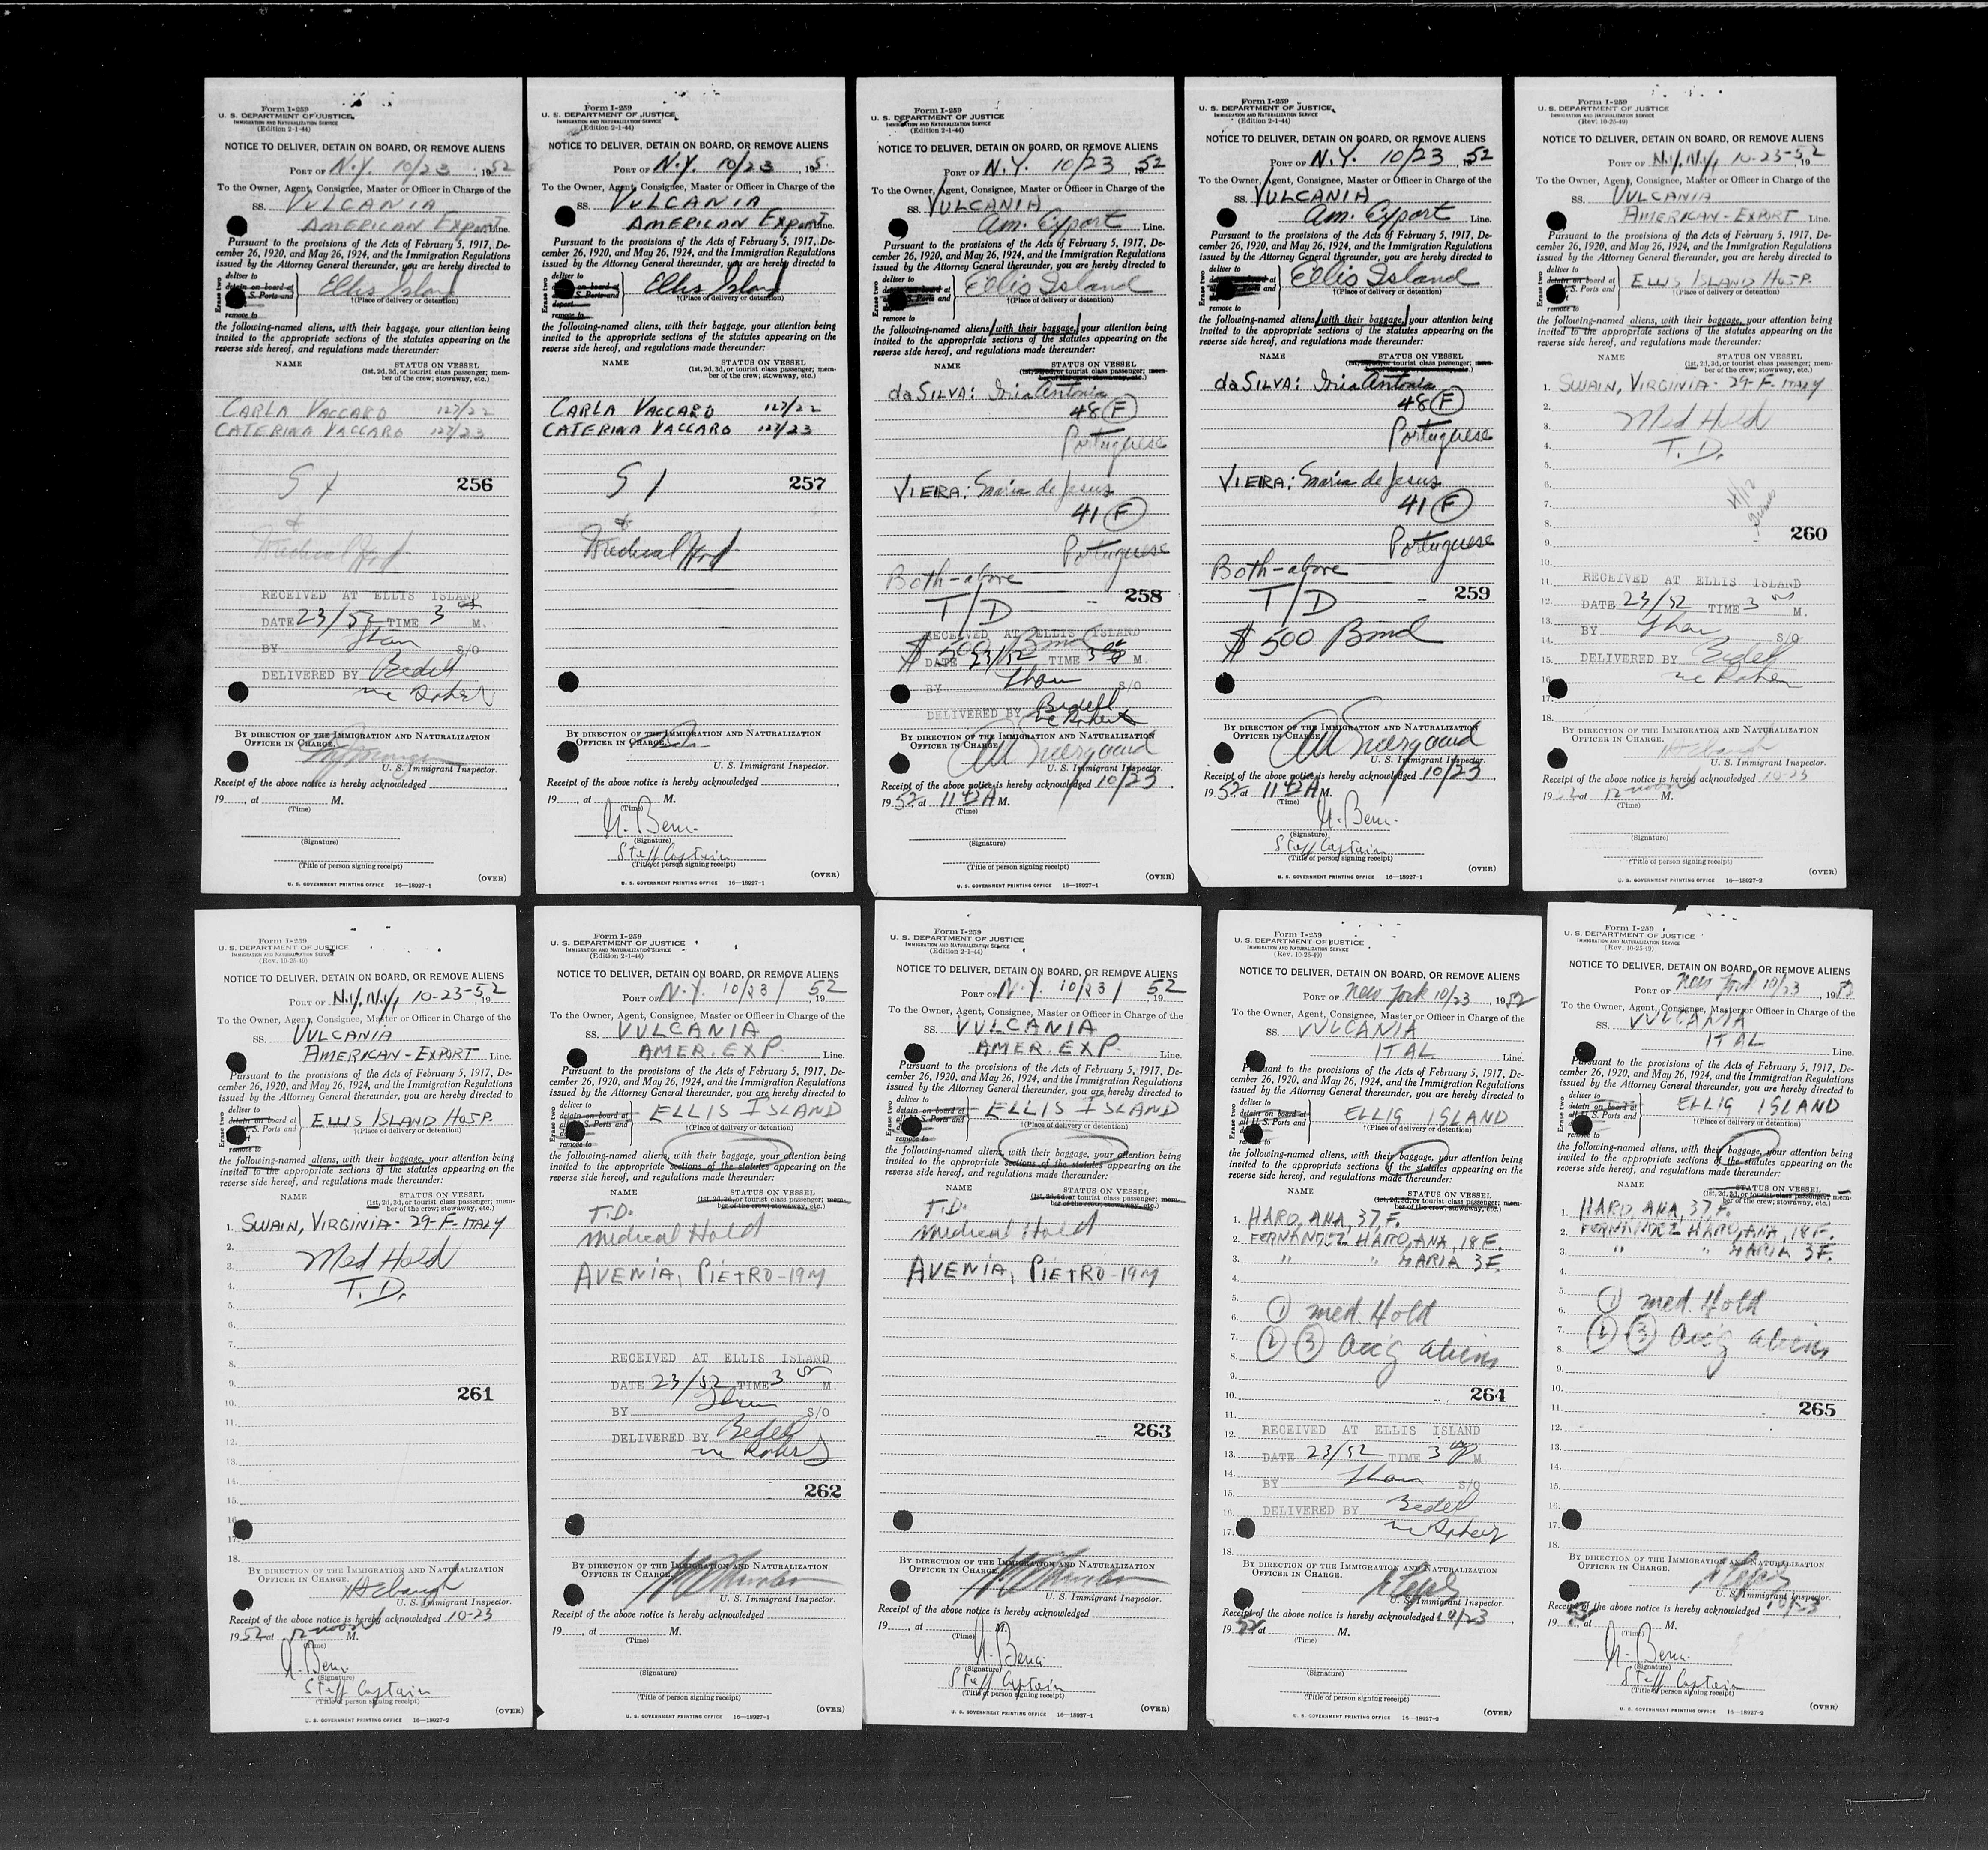 Form I-259
U. S. DEPARTMENT OF JUSTICE
IMMIGRATION AND NATURALIZATION SERVICE
(Edition 2-1-44)
NOTICE TO DELIVER, DETAIN ON BOARD, OR REMOVE ALIENS
PORT OF N.Y. 10/23, 1952
To the Owner, Agent, Consignee, Master or Officer in Charge of the
SS. VULCANIA
AMERICAN EXPORT Line.
Pursuant to the provisions of the Acts of February 5, 1917, De-
cember 26, 1920, and May 26, 1924, and the Immigration Regulations
issued by the Attorney General thereunder, you are hereby directed to
deliver to
detain on board at
S. Ports and
remove to
Ellis Island
†(Place of delivery or detention)
the following-named aliens, with their baggage, your attention being
invited to the appropriate sections of the statutes appearing on the
reverse side hereof, and regulations made thereunder:
NAME STATUS ON VESSEL
(1st, 2d, 3d, or tourist class passenger; mem-
ber of the crew; stowaway, etc.)
CARLA VACCARO 127/22
CATERINA VACCARO 127/23
256
Medical Hold
RECEIVED AT ELLIS ISLAND
DATE 23/52 TIME 3 M.
BY S/O
DELIVERED BY Bedell
BY DIRECTION OF THE IMMIGRATION AND NATURALIZATION
OFFICER IN CHARGE.
U. S. Immigrant Inspector.
Receipt of the above notice is hereby acknowledged
19 , at M.
(Signature)
(Title of person signing receipt)
(OVER)
U. S. GOVERNMENT PRINTING OFFICE 16—18927-1
Form I-259
U. S. DEPARTMENT OF JUSTICE
IMMIGRATION AND NATURALIZATION SERVICE
(Edition 2-1-44)
NOTICE TO DELIVER, DETAIN ON BOARD, OR REMOVE ALIENS
PORT OF N.Y. 10/23, 195
To the Owner, Agent, Consignee, Master or Officer in Charge of the
SS. VULCANIA
AMERICAN EXPORT Line.
Pursuant to the provisions of the Acts of February 5, 1917, De-
cember 26, 1920, and May 26, 1924, and the Immigration Regulations
issued by the Attorney General thereunder, you are hereby directed to
deliver to
detain on board at
S. Ports and
remove to
Ellis Island
†(Place of delivery or detention)
the following-named aliens, with their baggage, your attention being
invited to the appropriate sections of the statutes appearing on the
reverse side hereof, and regulations made thereunder:
NAME STATUS ON VESSEL
(1st, 2d, 3d, or tourist class passenger; mem-
ber of the crew; stowaway, etc.)
CARLA VACCARO 127/22
CATERINA VACCARO 127/23
257
Medical Hold
BY DIRECTION OF THE IMMIGRATION AND NATURALIZATION
OFFICER IN CHARGE.
U. S. Immigrant Inspector.
Receipt of the above notice is hereby acknowledged
19 , at M.
(Time)
(Signature)
Staff Captain
(Title of person signing receipt)
(OVER)
U. S. GOVERNMENT PRINTING OFFICE 16—18927-1
Form I-259
U. S. DEPARTMENT OF JUSTICE
IMMIGRATION AND NATURALIZATION SERVICE
(Edition 2-1-44)
NOTICE TO DELIVER, DETAIN ON BOARD, OR REMOVE ALIENS
PORT OF N.Y. 10/23, 1952
To the Owner, Agent, Consignee, Master or Officer in Charge of the
SS. VULCANIA
Am. Export Line.
Pursuant to the provisions of the Acts of February 5, 1917, De-
cember 26, 1920, and May 26, 1924, and the Immigration Regulations
issued by the Attorney General thereunder, you are hereby directed to
Erase two
deliver to
remove to
Ellis Island
†(Place of delivery or detention)
the following-named aliens, with their baggage, your attention being
invited to the appropriate sections of the statutes appearing on the
reverse side hereof, and regulations made thereunder:
NAME STATUS ON VESSEL
(1st, 2d, 3d, or tourist class passenger; mem-
ber of the crew; stowaway, etc.)
da SILVA: Iria Antonia
48 F
Portuguese
VIEIRA: Maria de Jesus
41 F
Portuguese
Both-above
T/D
258
RECEIVED AT ELLIS ISLAND
$500 Bond
DATE 23/52 TIME 3 M.
BY S/O
DELIVERED BY Bedell
BY DIRECTION OF THE IMMIGRATION AND NATURALIZATION
OFFICER IN CHARGE.
U. S. Immigrant Inspector.
Receipt of the above notice is hereby acknowledged 10/23
1952 at 11 42 A M.
(Signature)
(Title of person signing receipt)
(OVER)
U. S. GOVERNMENT PRINTING OFFICE 16—18927-1
Form I-259
U. S. DEPARTMENT OF JUSTICE
IMMIGRATION AND NATURALIZATION SERVICE
(Edition 2-1-44)
NOTICE TO DELIVER, DETAIN ON BOARD, OR REMOVE ALIENS
PORT OF N.Y. 10/23, 1952
To the Owner, Agent, Consignee, Master or Officer in Charge of the
SS. VULCANIA
Am. Export Line.
Pursuant to the provisions of the Acts of February 5, 1917, De-
cember 26, 1920, and May 26, 1924, and the Immigration Regulations
issued by the Attorney General thereunder, you are hereby directed to
Erase two
deliver to
remove to
Ellis Island
†(Place of delivery or detention)
the following-named aliens, with their baggage, your attention being
invited to the appropriate sections of the statutes appearing on the
reverse side hereof, and regulations made thereunder:
NAME STATUS ON VESSEL
(1st, 2d, 3d, or tourist class passenger; mem-
ber of the crew; stowaway, etc.)
da SILVA: Iria Antonia
48 F
Portuguese
VIEIRA: Maria de Jesus
41 F
Portuguese
Both-above
T/D
259
$500 Bond
BY DIRECTION OF THE IMMIGRATION AND NATURALIZATION
OFFICER IN CHARGE.
U. S. Immigrant Inspector.
Receipt of the above notice is hereby acknowledged 10/23
1952 at 11 42 A M.
(Time)
(Signature)
Staff Captain
(Title of person signing receipt)
(OVER)
U. S. GOVERNMENT PRINTING OFFICE 16—18927-1
Form I-259
U. S. DEPARTMENT OF JUSTICE
IMMIGRATION AND NATURALIZATION SERVICE
(Rev. 10-25-49)
NOTICE TO DELIVER, DETAIN ON BOARD, OR REMOVE ALIENS
PORT OF N.Y., N.Y., 10-23-52
To the Owner, Agent, Consignee, Master or Officer in Charge of the
SS. VULCANIA
AMERICAN-EXPORT Line.
Pursuant to the provisions of the Acts of February 5, 1917, De-
cember 26, 1920, and May 26, 1924, and the Immigration Regulations
issued by the Attorney General thereunder, you are hereby directed to
Erase two
deliver to
detain on board at
S. Ports and
remove to
ELLIS ISLAND HOSP.
†(Place of delivery or detention)
the following-named aliens, with their baggage, your attention being
invited to the appropriate sections of the statutes appearing on the
reverse side hereof, and regulations made thereunder:
NAME STATUS ON VESSEL
(1st, 2d, 3d, or tourist class passenger; mem-
ber of the crew; stowaway, etc.)
1. SWAIN, VIRGINIA - 29-F. ITALY
2. Med Hold
3.
4. T.D.
5.
6.
7.
8.
260
9.
10.
11. RECEIVED AT ELLIS ISLAND
12. DATE 23/52 TIME 3 M.
13.
14. BY S/O
15. DELIVERED BY Bedell
16.
17.
18.
BY DIRECTION OF THE IMMIGRATION AND NATURALIZATION
OFFICER IN CHARGE.
U. S. Immigrant Inspector.
Receipt of the above notice is hereby acknowledged 10-23
1952 at 12 noon M.
(Time)
(Signature)
(Title of person signing receipt)
(OVER)
U. S. GOVERNMENT PRINTING OFFICE 16—18927-2
Form I-259
U. S. DEPARTMENT OF JUSTICE
IMMIGRATION AND NATURALIZATION SERVICE
(Rev. 10-25-49)
NOTICE TO DELIVER, DETAIN ON BOARD, OR REMOVE ALIENS
PORT OF N.Y., N.Y., 10-23-52
To the Owner, Agent, Consignee, Master or Officer in Charge of the
SS. VULCANIA
AMERICAN-EXPORT Line.
Pursuant to the provisions of the Acts of February 5, 1917, De-
cember 26, 1920, and May 26, 1924, and the Immigration Regulations
issued by the Attorney General thereunder, you are hereby directed to
Erase two
deliver to
detain on board at
S. Ports and
remove to
ELLIS ISLAND HOSP.
†(Place of delivery or detention)
the following-named aliens, with their baggage, your attention being
invited to the appropriate sections of the statutes appearing on the
reverse side hereof, and regulations made thereunder:
NAME STATUS ON VESSEL
(1st, 2d, 3d, or tourist class passenger; mem-
ber of the crew; stowaway, etc.)
1. SWAIN, VIRGINIA - 29-F. ITALY
2. Med Hold
3.
4. T.D.
5.
6.
7.
8.
9.
261
10.
11.
12.
13.
14.
15.
16.
17.
18.
BY DIRECTION OF THE IMMIGRATION AND NATURALIZATION
OFFICER IN CHARGE.
U. S. Immigrant Inspector.
Receipt of the above notice is hereby acknowledged 10-23
1952 at 12 noon M.
(Time)
(Signature)
Staff Captain
(Title of person signing receipt)
(OVER)
U. S. GOVERNMENT PRINTING OFFICE 16—18927-2
Form I-259
U. S. DEPARTMENT OF JUSTICE
IMMIGRATION AND NATURALIZATION SERVICE
(Edition 2-1-44)
NOTICE TO DELIVER, DETAIN ON BOARD, OR REMOVE ALIENS
PORT OF N.Y. 10/23/, 1952
To the Owner, Agent, Consignee, Master or Officer in Charge of the
SS. VULCANIA
AMER. EXP. Line.
Pursuant to the provisions of the Acts of February 5, 1917, De-
cember 26, 1920, and May 26, 1924, and the Immigration Regulations
issued by the Attorney General thereunder, you are hereby directed to
Erase two
deliver to
detain on board at
S. Ports and
remove to
ELLIS ISLAND
†(Place of delivery or detention)
the following-named aliens, with their baggage, your attention being
invited to the appropriate sections of the statutes appearing on the
reverse side hereof, and regulations made thereunder:
NAME STATUS ON VESSEL
(1st, 2d, 3d, or tourist class passenger; mem-
ber of the crew; stowaway, etc.)
T.D.
Medical Hold
AVENIA, PIETRO-19M
RECEIVED AT ELLIS ISLAND
DATE 23/52 TIME 3 M.
BY S/O
DELIVERED BY Bedell
262
BY DIRECTION OF THE IMMIGRATION AND NATURALIZATION
OFFICER IN CHARGE.
U. S. Immigrant Inspector.
Receipt of the above notice is hereby acknowledged
19 , at M.
(Time)
(Signature)
(Title of person signing receipt)
(OVER)
U. S. GOVERNMENT PRINTING OFFICE 16—18927-1
Form I-259
U. S. DEPARTMENT OF JUSTICE
IMMIGRATION AND NATURALIZATION SERVICE
(Edition 2-1-44)
NOTICE TO DELIVER, DETAIN ON BOARD, OR REMOVE ALIENS
PORT OF N.Y. 10/23/, 1952
To the Owner, Agent, Consignee, Master or Officer in Charge of the
SS. VULCANIA
AMER. EXP. Line.
Pursuant to the provisions of the Acts of February 5, 1917, De-
cember 26, 1920, and May 26, 1924, and the Immigration Regulations
issued by the Attorney General thereunder, you are hereby directed to
Erase two
deliver to
detain on board at
all U. S. Ports and
remove to
ELLIS ISLAND
†(Place of delivery or detention)
the following-named aliens, with their baggage, your attention being
invited to the appropriate sections of the statutes appearing on the
reverse side hereof, and regulations made thereunder:
NAME STATUS ON VESSEL
(1st, 2d, 3d, or tourist class passenger; mem-
ber of the crew; stowaway, etc.)
T.D.
Medical Hold
AVENIA, PIETRO-19M
263
BY DIRECTION OF THE IMMIGRATION AND NATURALIZATION
OFFICER IN CHARGE.
U. S. Immigrant Inspector.
Receipt of the above notice is hereby acknowledged
19 , at M.
(Time)
(Signature)
Staff Captain
(Title of person signing receipt)
(OVER)
U. S. GOVERNMENT PRINTING OFFICE 16—18927-1
Form I-259
U. S. DEPARTMENT OF JUSTICE
IMMIGRATION AND NATURALIZATION SERVICE
(Rev. 10-25-49)
NOTICE TO DELIVER, DETAIN ON BOARD, OR REMOVE ALIENS
PORT OF New York 10/23 1952
To the Owner, Agent, Consignee, Master or Officer in Charge of the
SS. VULCANIA
ITAL Line.
Pursuant to the provisions of the Acts of February 5, 1917, De-
cember 26, 1920, and May 26, 1924, and the Immigration Regulations
issued by the Attorney General thereunder, you are hereby directed to
Erase two
deliver to
detain on board at
all U. S. Ports and
remove to
ELLIS ISLAND
†(Place of delivery or detention)
the following-named aliens, with their baggage, your attention being
invited to the appropriate sections of the statutes appearing on the
reverse side hereof, and regulations made thereunder:
NAME STATUS ON VESSEL
(1st, 2d, 3d, or tourist class passenger; mem-
ber of the crew; stowaway, etc.)
1. HARO, ANA, 37 F.
2. FERNANDEZ HARO, ANA, 18 F.
3. " " MARIA 3F.
4.
5.
6. ① med. Hold
7. ② ③ acc'g aliens
8.
9.
10. 264
11.
12. RECEIVED AT ELLIS ISLAND
13. DATE 23/52 TIME 3 M.
14. BY S/O
15.
16. DELIVERED BY Bedell
17.
18.
BY DIRECTION OF THE IMMIGRATION AND NATURALIZATION
OFFICER IN CHARGE.
U. S. Immigrant Inspector.
Receipt of the above notice is hereby acknowledged 10/23
1952 at M.
(Time)
(Signature)
(Title of person signing receipt)
(OVER)
U. S. GOVERNMENT PRINTING OFFICE 16—18927-2
Form I-259
U. S. DEPARTMENT OF JUSTICE
IMMIGRATION AND NATURALIZATION SERVICE
(Rev. 10-25-49)
NOTICE TO DELIVER, DETAIN ON BOARD, OR REMOVE ALIENS
PORT OF New York 10/23 1952
To the Owner, Agent, Consignee, Master or Officer in Charge of the
SS. VULCANIA
ITAL Line.
Pursuant to the provisions of the Acts of February 5, 1917, De-
cember 26, 1920, and May 26, 1924, and the Immigration Regulations
issued by the Attorney General thereunder, you are hereby directed to
Erase two
deliver to
detain on board at
all U. S. Ports and
remove to
ELLIS ISLAND
†(Place of delivery or detention)
the following-named aliens, with their baggage, your attention being
invited to the appropriate sections of the statutes appearing on the
reverse side hereof, and regulations made thereunder:
NAME STATUS ON VESSEL
(1st, 2d, 3d, or tourist class passenger; mem-
ber of the crew; stowaway, etc.)
1. HARO, ANA, 37 F.
2. FERNANDEZ HARO, ANA, 18 F.
3. " " MARIA 3F.
4.
5.
6. ① med. Hold
7. ② ③ acc'g aliens
8.
9.
10.
11. 265
12.
13.
14.
15.
16.
17.
18.
BY DIRECTION OF THE IMMIGRATION AND NATURALIZATION
OFFICER IN CHARGE.
U. S. Immigrant Inspector.
Receipt of the above notice is hereby acknowledged 10/23
1952 at M.
(Time)
(Signature)
Staff Captain
(Title of person signing receipt)
(OVER)
U. S. GOVERNMENT PRINTING OFFICE 16—18927-2